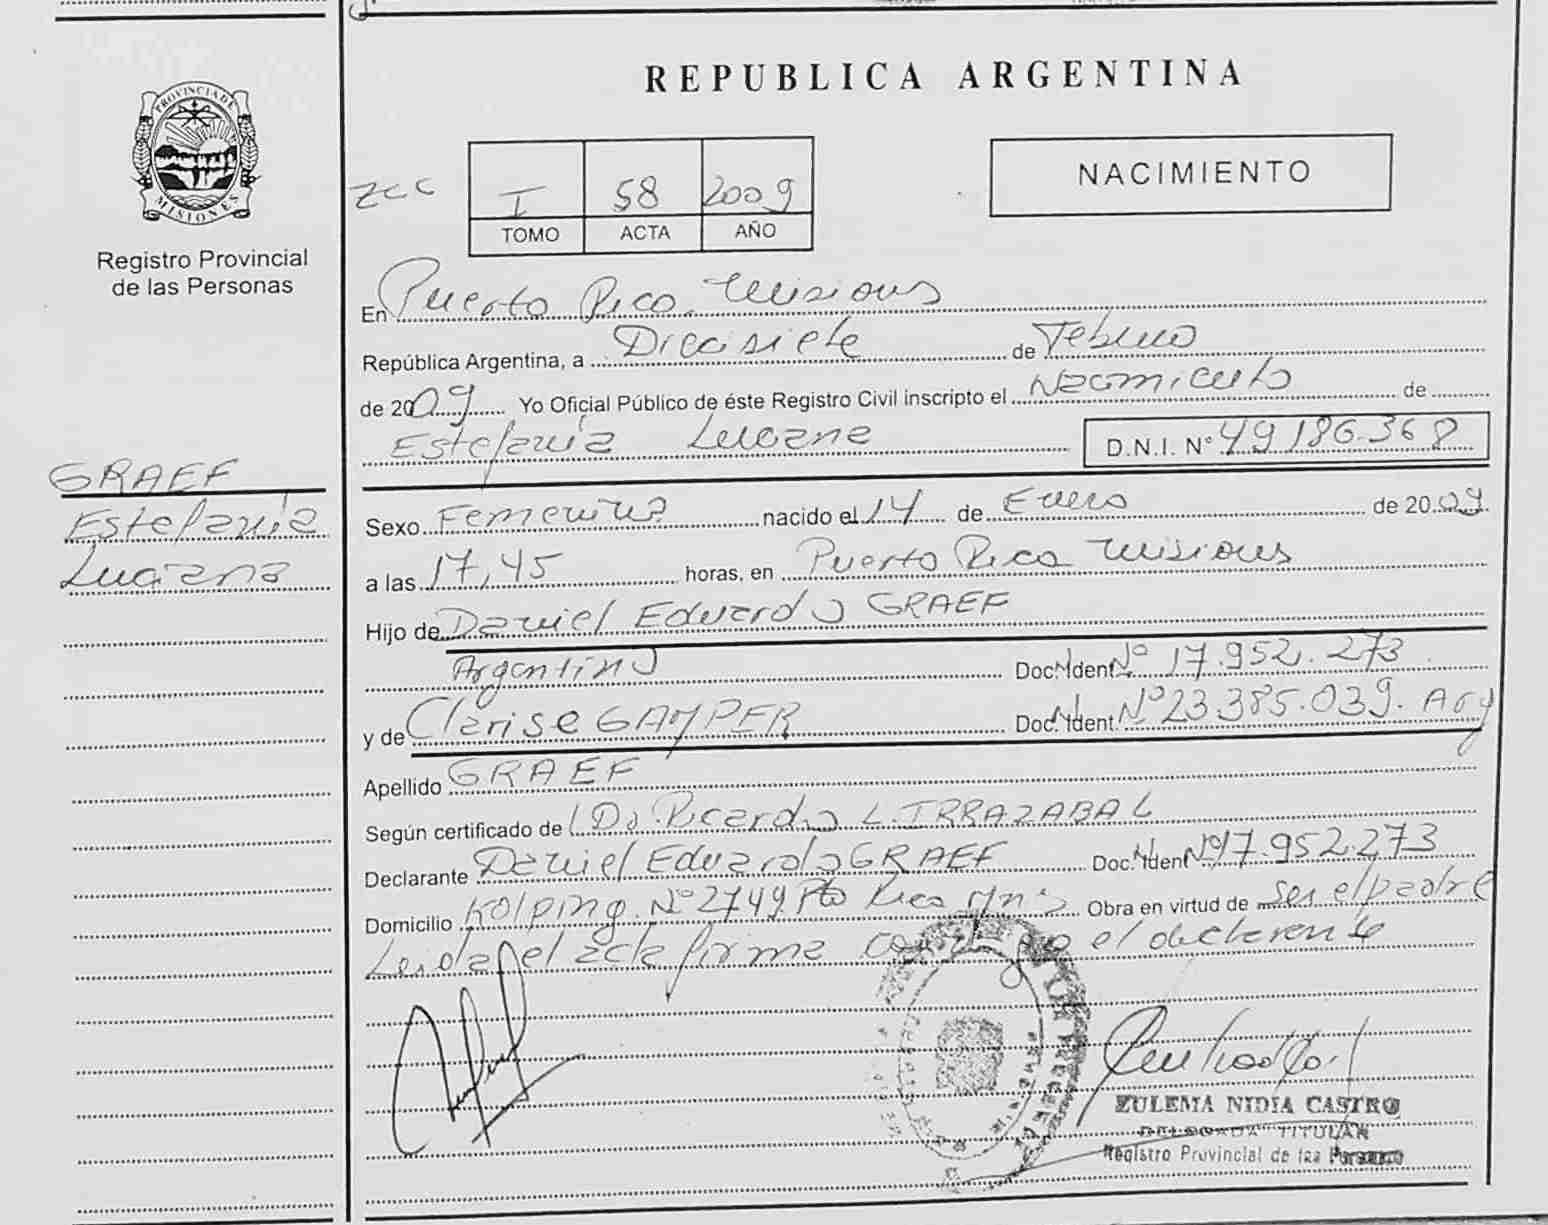 REPUBLICA ARGENTINA
PROVINCIA DE
MISIONES
Registro Provincial
de las Personas
I 58 2009
TOMO ACTA AÑO
NACIMIENTO
En Puerto Rico. Misiones
República Argentina, a Diecisiete de Febrero
de 2009 Yo Oficial Público de éste Registro Civil inscripto el Nacimiento de
Estefanía Luciana D.N.I. Nº 49.186.368
GRAEF
Estefanía
Luciana
Sexo Femenino nacido el 14 de Enero de 2009
a las 17,45 horas, en Puerto Rico Misiones
Hijo de Daniel Eduardo GRAEF
Argentino Doc. Ident. Nº 17.952.273
y de Clarise GAMPER Doc. Ident. Nº 23.385.039. Arg
Apellido GRAEF
Según certificado de Ricardo L. IRRAZABAL
Declarante Daniel Eduardo GRAEF Doc. Ident. Nº 17.952.273
Domicilio Kolping Nº 2749 Pto Rico Mnes Obra en virtud de ser el padre
Leida el acta firma conmigo el declarante
ZULEMA NIDIA CASTRO
DELEGADA TITULAR
Registro Provincial de las Personas